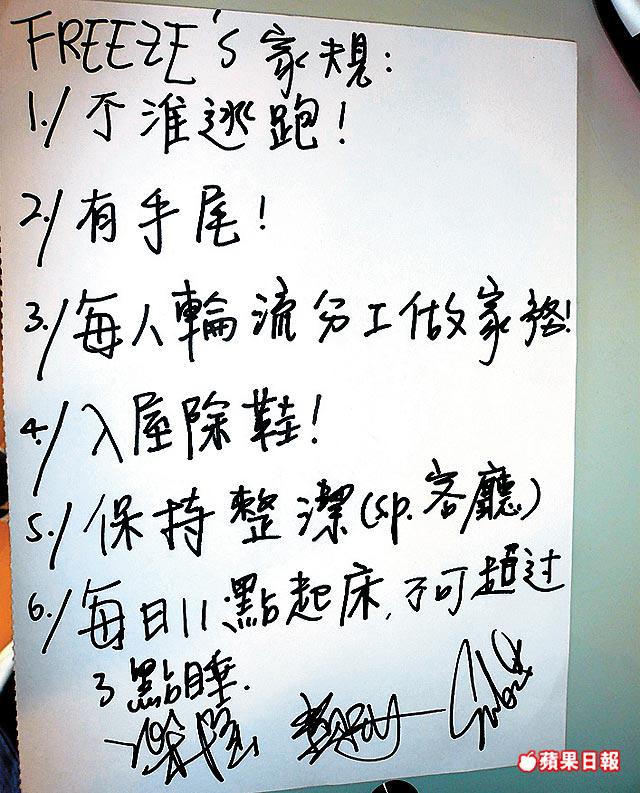 FREEZE's 家規:
1./ 不准逃跑!
2./ 有手尾!
3./ 每人輪流分工做家務!
4./ 入屋除鞋!
5./ 保持整潔(sp.客廳)
6./ 每日11點起床,不可超过
3點睡.
蘋果日報